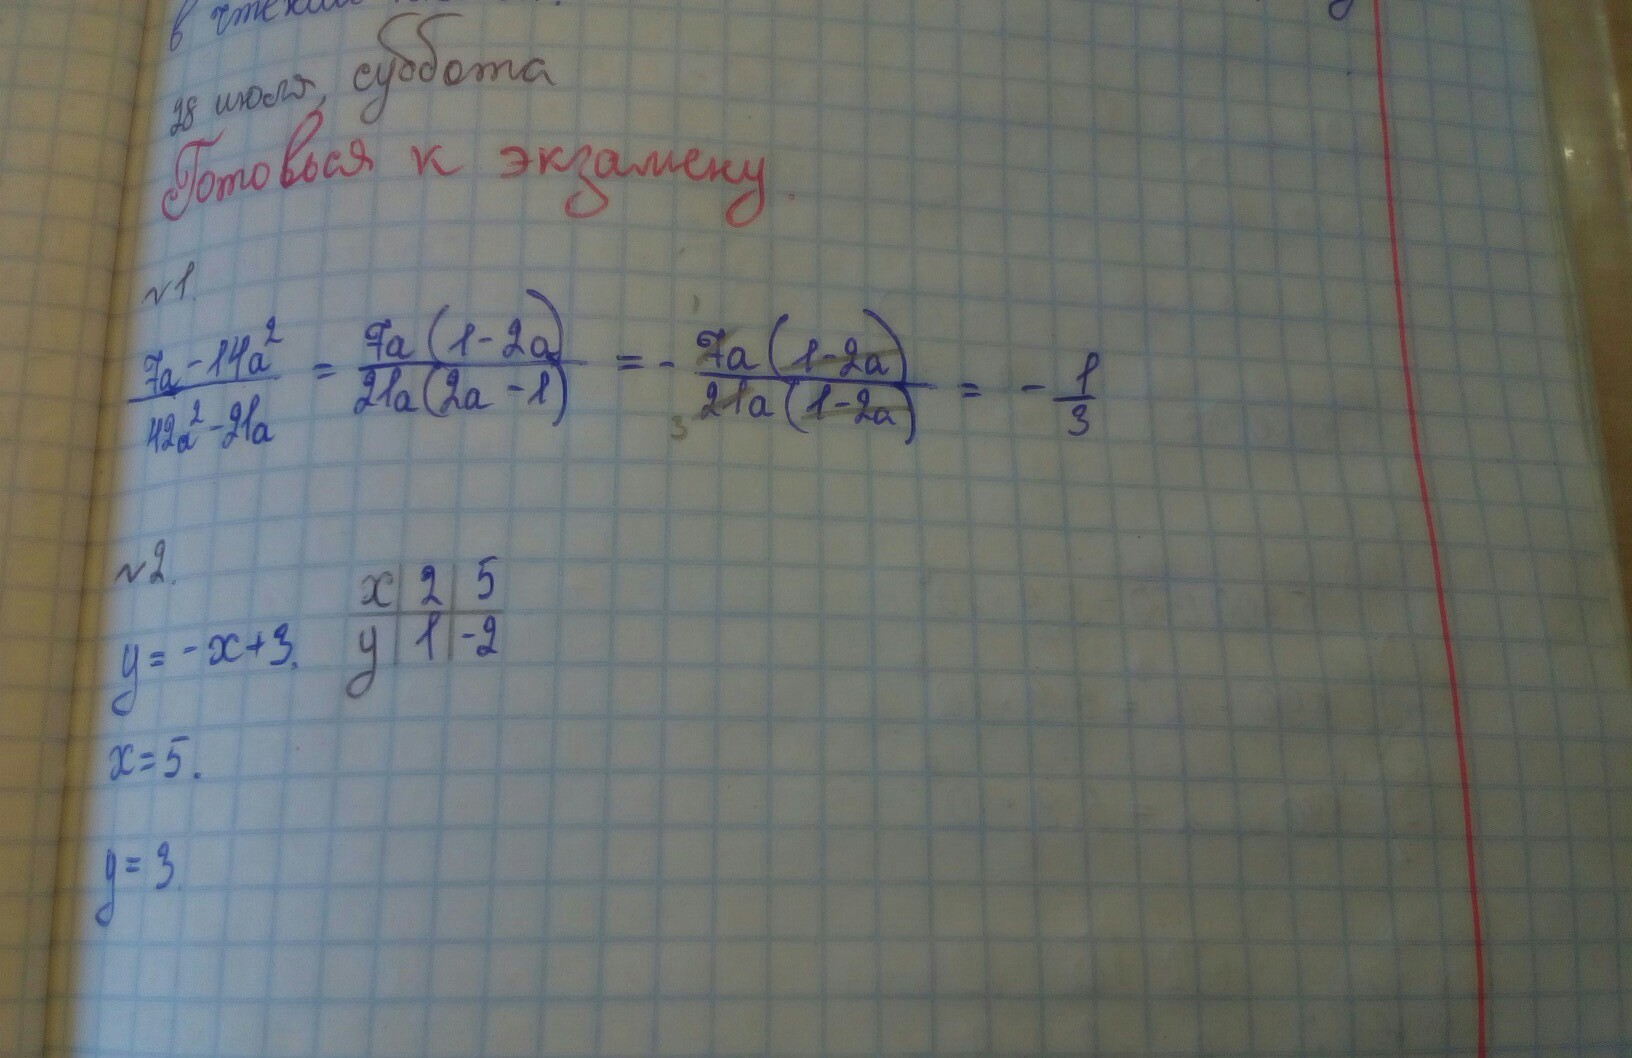 28 июля, суббота
Готовься к экзамену.
№1.
7a-14a²/42a²-21a = 7a(1-2a)/21a(2a-1) = - 7a(1-2a)/21a(1-2a) = - 1/3
№2.
x | 2 | 5
y = -x+3. y | 1 | -2
x = 5.
y = 3